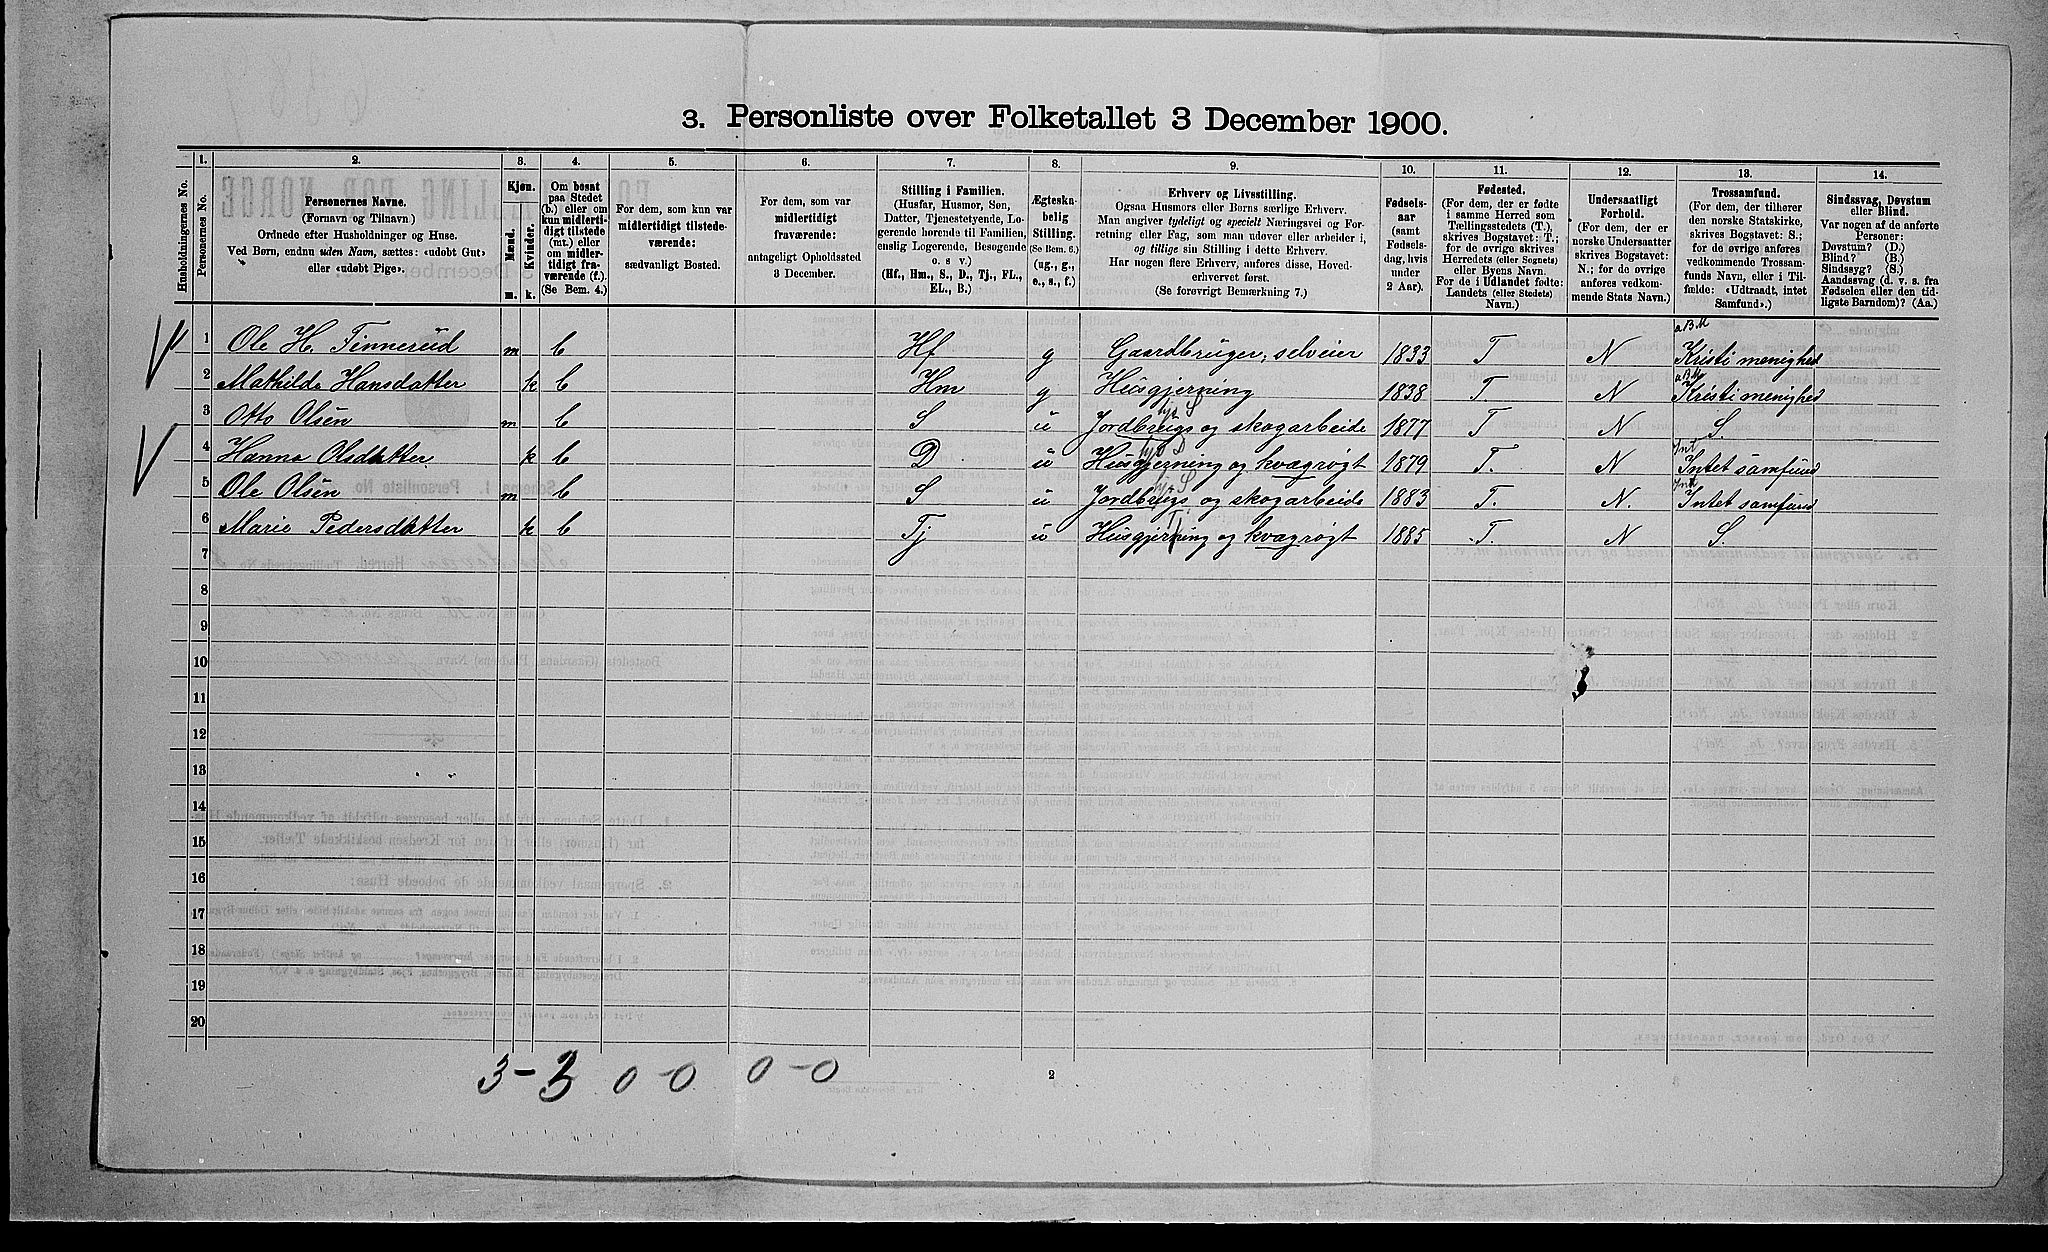 3. Personliste over Folketallet 3 December 1900.
1. 2. 3. 4. 5. 6. 7. 8. 9. 10. 11. 12. 13. 14.
Husholdningernes No.
Personernes No.
Personernes Navne.
(Fornavn og Tilnavn.)
Ordnede efter Husholdninger og Huse.
Ved Børn, endnu uden Navn, sættes: «udøbt Gut»
eller «udøbt Pige».
Kjøn.
Mænd.
Kvinder.
m. k.
Om bosat
paa Stedet
(b.) eller om
kun midlerti-
digt tilstede
(mt.) eller
om midler-
tidigt fra-
værende (f.)
(Se Bem. 4.)
For dem, som kun var
midlertidigt tilstede-
værende:
sædvanligt Bosted.
For dem, som var
midlertidigt
fraværende:
antageligt Opholdssted
3 December.
Stilling i Familien.
(Husfar, Husmor, Søn,
Datter, Tjenestetyende, Lo-
gerende hørende til Familien,
enslig Logerende, Besøgende
o. s. v.)
(Hf., Hm., S., D., Tj., FL.,
EL., B.)
Ægteska-
belig
Stilling.
(Se Bem. 6.)
(ug., g.,
e., s., f.)
Erhverv og Livsstilling.
Ogsaa Husmors eller Børns særlige Erhverv.
Man angiver tydeligt og specielt Næringsvei og For-
retning eller Fag, som man udøver eller arbeider i,
og tillige sin Stilling i dette Erhverv.
Har nogen flere Erhverv, anføres disse, Hoved-
erhvervet først.
(Se forøvrigt Bemærkning 7.)
Fødsels-
aar
(samt
Fødsels-
dag, hvis
under
2 Aar).
Fødested.
(For dem, der er fødte
i samme Herred som
Tællingsstedets (T.),
skrives Bogstavet: T.;
for de øvrige skrives
Herredets (eller Sognets)
eller Byens Navn.
For de i Udlandet fødte:
Landets (eller Stedets)
Navn.)
Undersaatligt
Forhold.
(For dem, der er
norske Undersaatter
skrives Bogstavet:
N.; for de øvrige
anføres vedkom-
mende Stats Navn.)
Trossamfund.
(For dem, der tilhører
den norske Statskirke,
skrives Bogstavet: S.;
for de øvrige anføres
vedkommende Trossam-
funds Navn, eller i Til-
fælde: «Udtraadt, intet
Samfund».)
Sindssvag, Døvstum
eller Blind.
Var nogen af de anførte
Personer:
Døvstum? (D.)
Blind? (B.)
Sindssyg? (S.)
Aandssvag (d. v. s. fra
Fødselen eller den tid-
ligste Barndom)? (Aa.)
1 Ole H. Finnerud m b Hf g Gaardbruger, selveier 1833 T N Kristi menighed
2 Mathilde Hansdatter k b Hm g Husgjerning 1838 T. N Kristi menighed
3 Otto Olsen m b S u Jordbrugs og skogarbeide 1877 T N S.
4 Hanna Olsdatter k b D u Husgjerning og kvægrøgt 1879 T. N Intet samfund
5 Ole Olsen m b S u Jordbrugs og skogarbeide 1883 T. N. Intet samfund
6 Marie Pedersdatter k b Tj u Husgjerning og kvægrøgt 1885 T. N S.
7
8
9
10
11
12
13
14
15
16
17
18
19
20
3 - 3 0 - 0 0 - 0
2